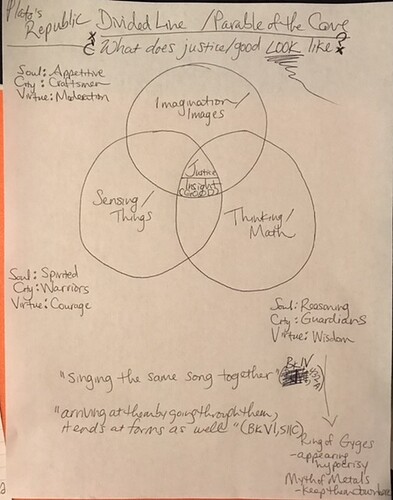 Plato's
Republic
Divided Line / Parable of the Cave
What does justice/good LOOK like?
Soul: Appetitive
City: Craftsmen
Virtue: Moderation
Imagination/
Images
Justice
Insight
(GOOD)
Sensing/
Things
Thinking/
Math
Soul: Spirited
City: Warriors
Virtue: Courage
Soul: Reasoning
City: Guardians
Virtue: Wisdom
"Singing the same song together"
Bk IV
"arriving at them by going through them,
it ends at forms as well" (Bk VI, 511C)
Ring of Gyges
-appearing
hypocrisy
Myth of Metals
-keep them down here